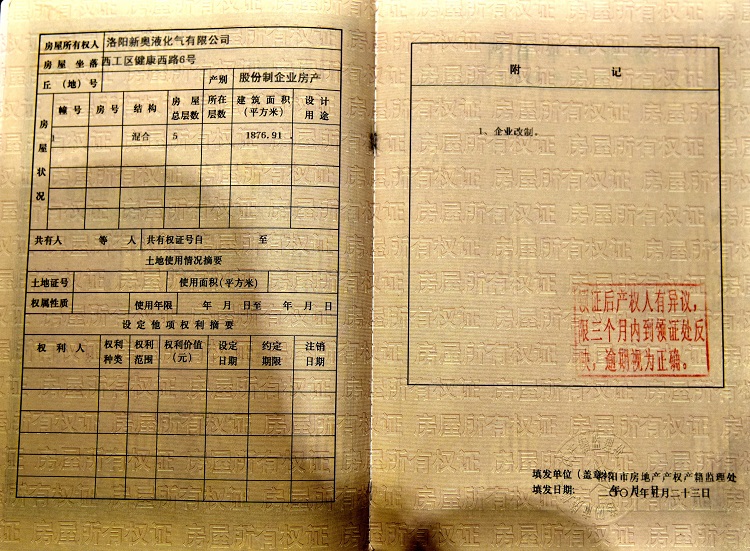 房屋所有权人 洛阳新奥液化气有限公司
房屋坐落 西工区健康西路6号
丘(地)号 产别 股份制企业房产
房屋状况 幢号 房号 结构 房屋总层数 所在层数 建筑面积(平方米) 设计用途
1 混合 5 1876.91
共有人 等 人 共有权证号自 至
土地使用情况摘要
土地证号 使用面积(平方米)
权属性质 使用年限 年 月 日至 年 月 日
设定他项权利摘要
权利人 权利种类 权利范围 权利价值(元) 设定日期 约定期限 注销日期
附 记
1、企业改制。
领证后产权人有异议,
限三个月内到领证处反
映,逾期视为正确。
填发单位(盖章): 洛阳市房地产产权产籍监理处
填发日期: 二〇〇八年 月二十三日